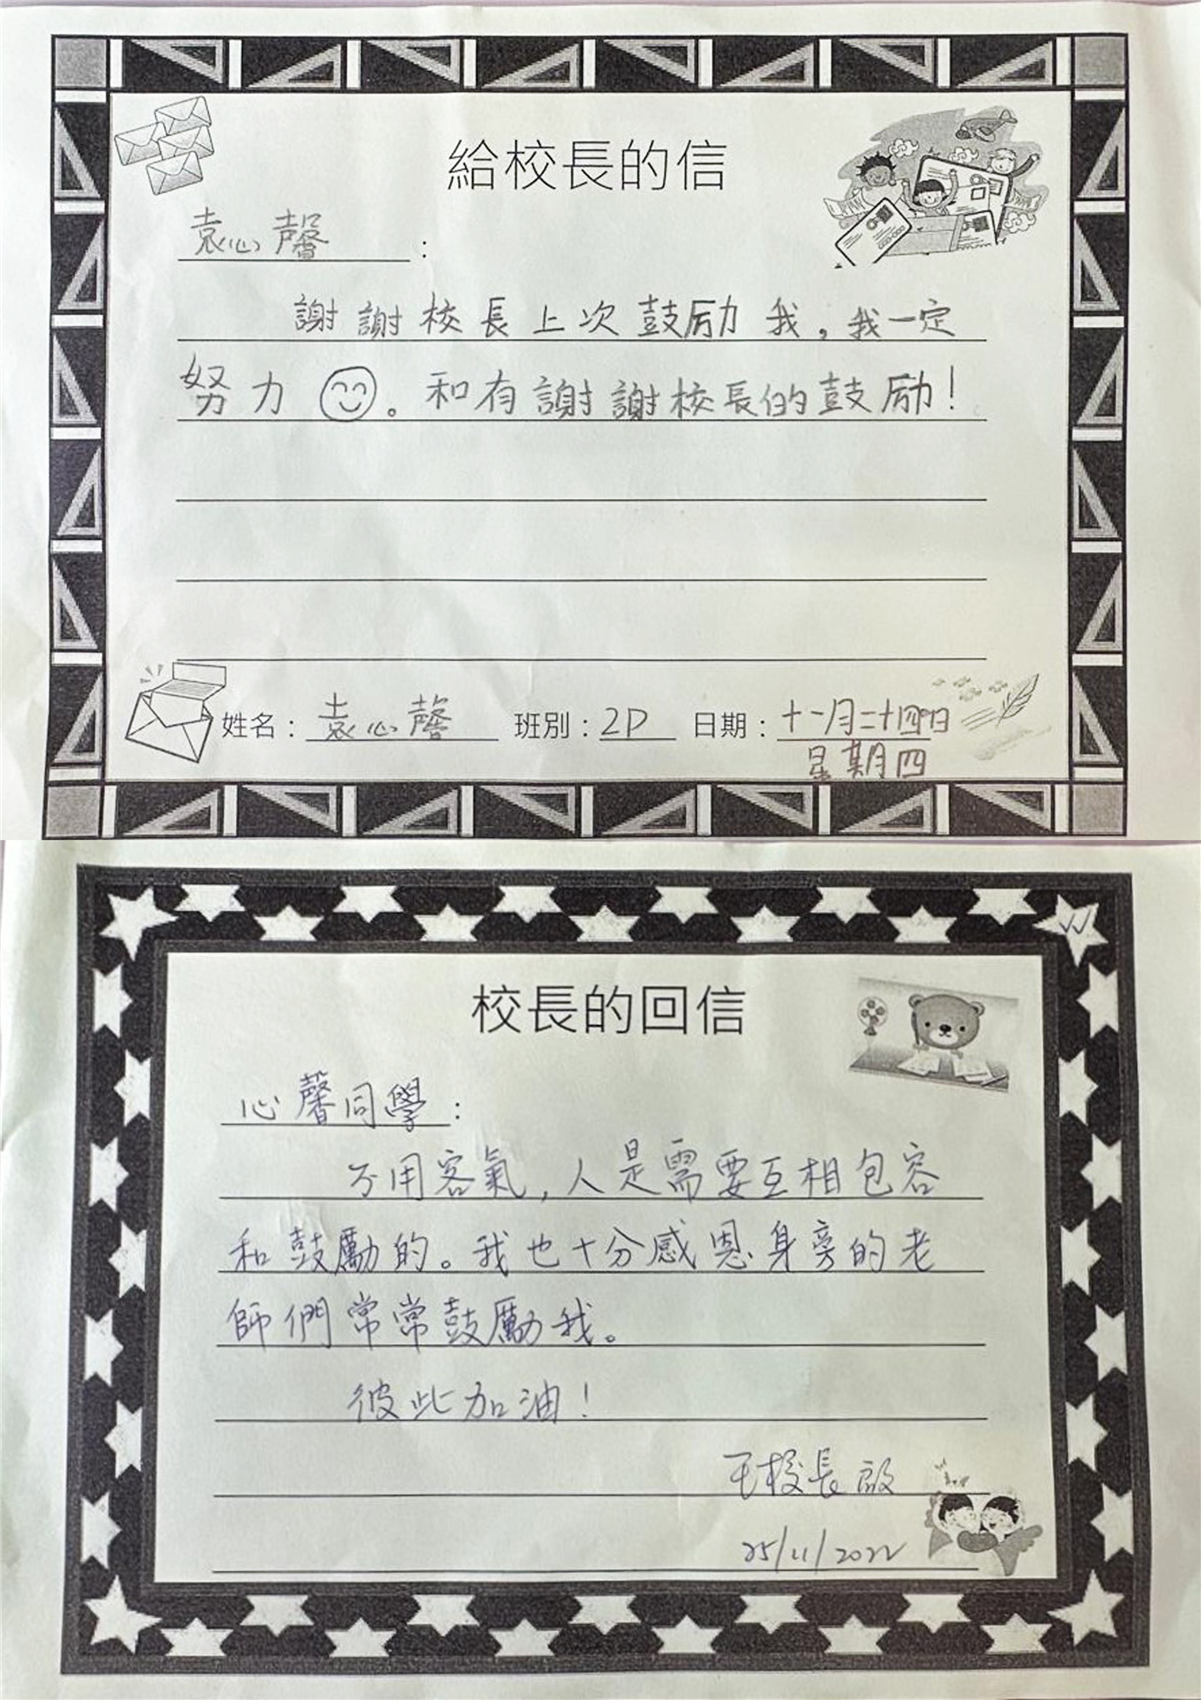 給校長的信
袁心馨：
謝謝校長上次鼓励我，我一定
努力。和有謝謝校長的鼓励！
姓名：袁心馨 班別：2P 日期：十一月二十四日
星期四
校長的回信
心馨同學：
不用客氣，人是需要互相包容
和鼓勵的。我也十分感恩身旁的老
師們常常鼓勵我。
彼此加油！
王校長啟
25/11/2022